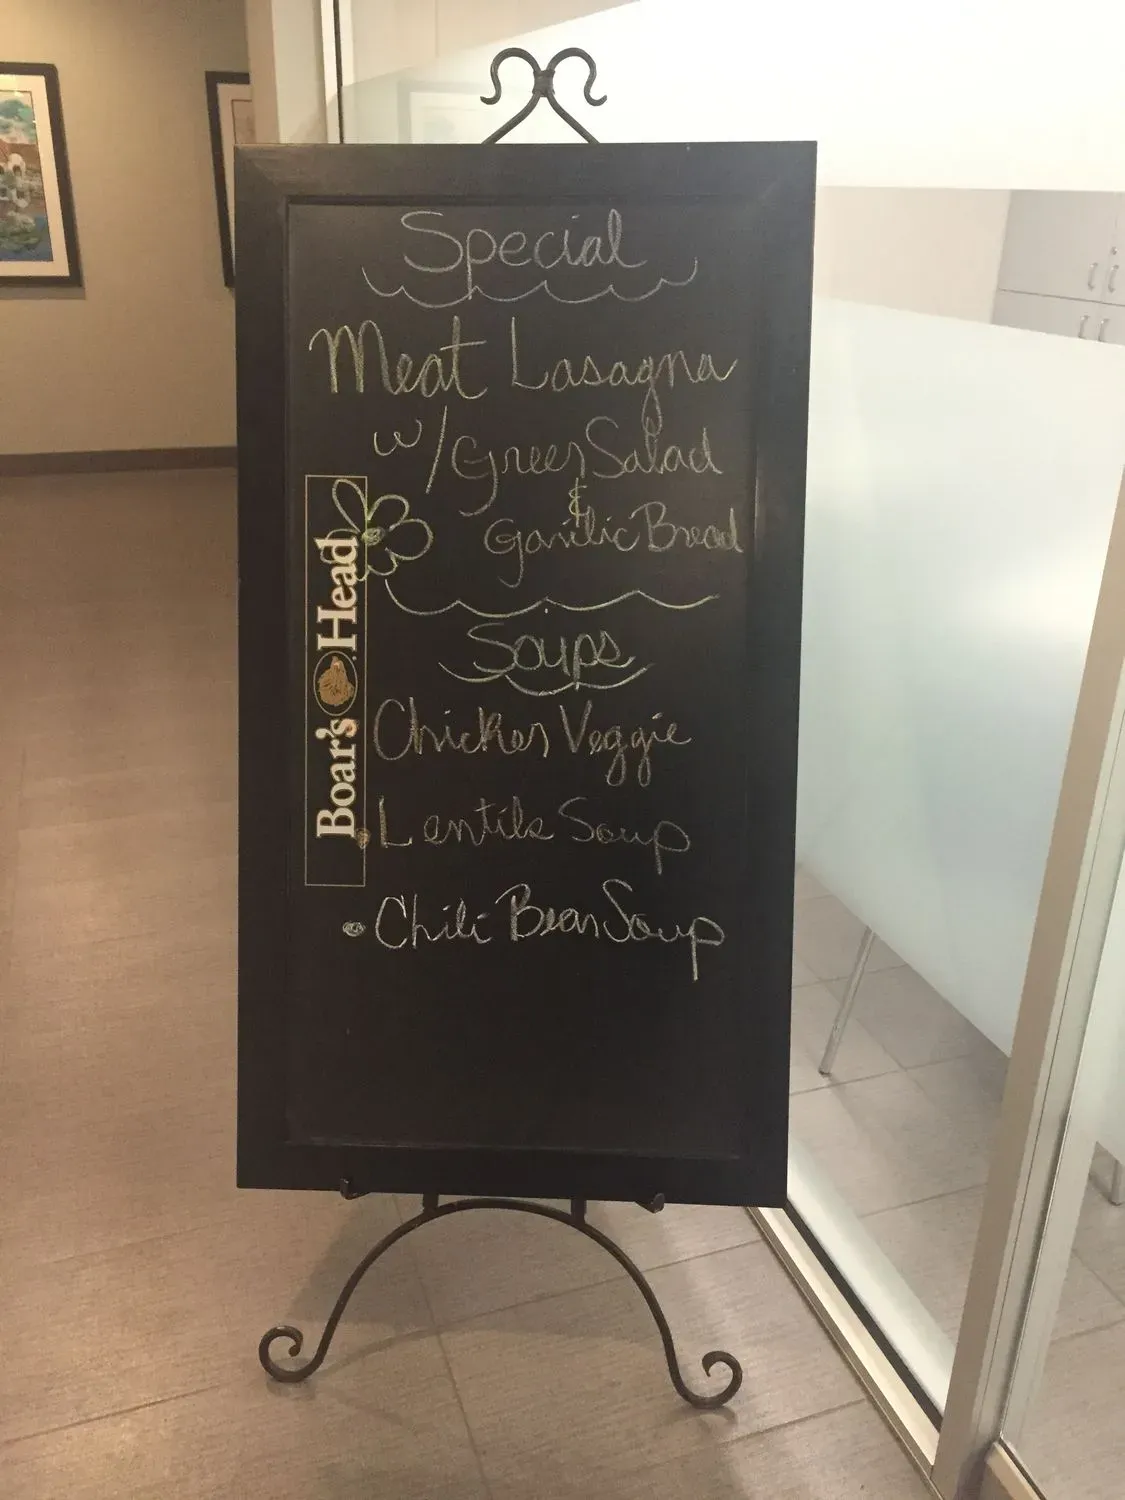 Special
Meat Lasagna
w/Green Salad
&
Garilic Bread
Boar's Head
Soups
Chicken Veggie
Lentils Soup
• Chili Bean Soup